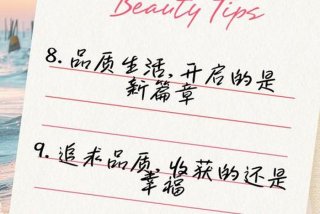 Beauty Tips
8.品质生活,开启的是
新篇章
9.追求品质,收获的还是
幸福